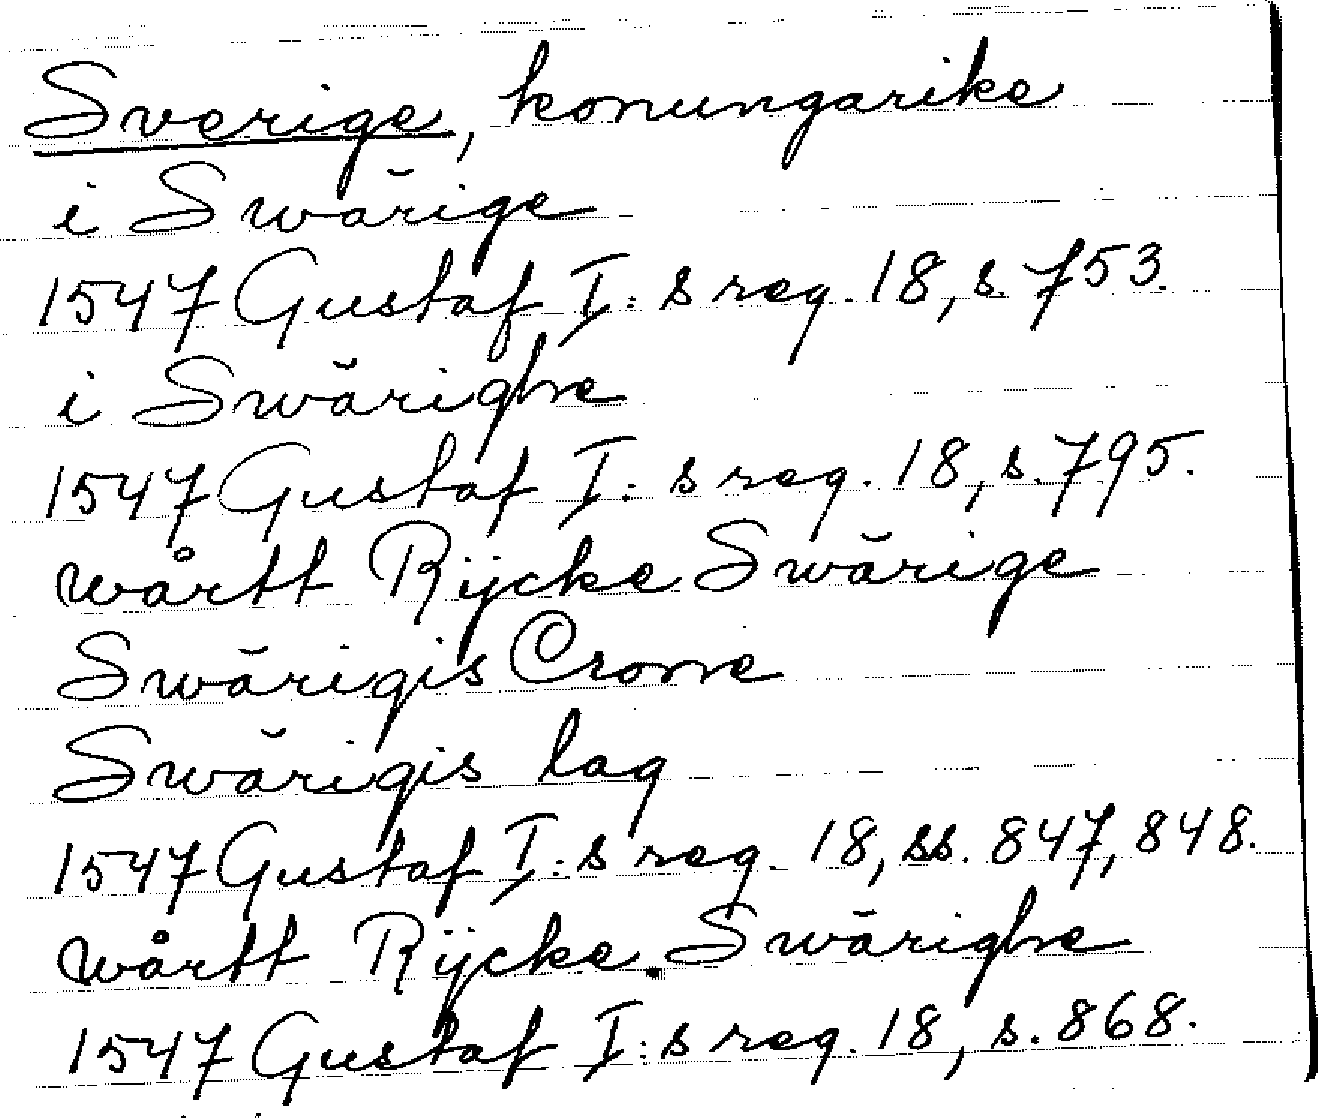 Sverige, konungarike
i Swärige
1547 Gustaf I:s reg. 18, s. 753.
i Swärighe
1547 Gustaf I:s reg. 18, s. 795.
wårtt Rÿcke Swärige
Swärigis Crone
Swärigis lag
1547 Gustaf I:s reg. 18, ss. 847, 848.
wårtt Rÿcke Swärighe
1547 Gustaf I:s reg. 18, s. 868.